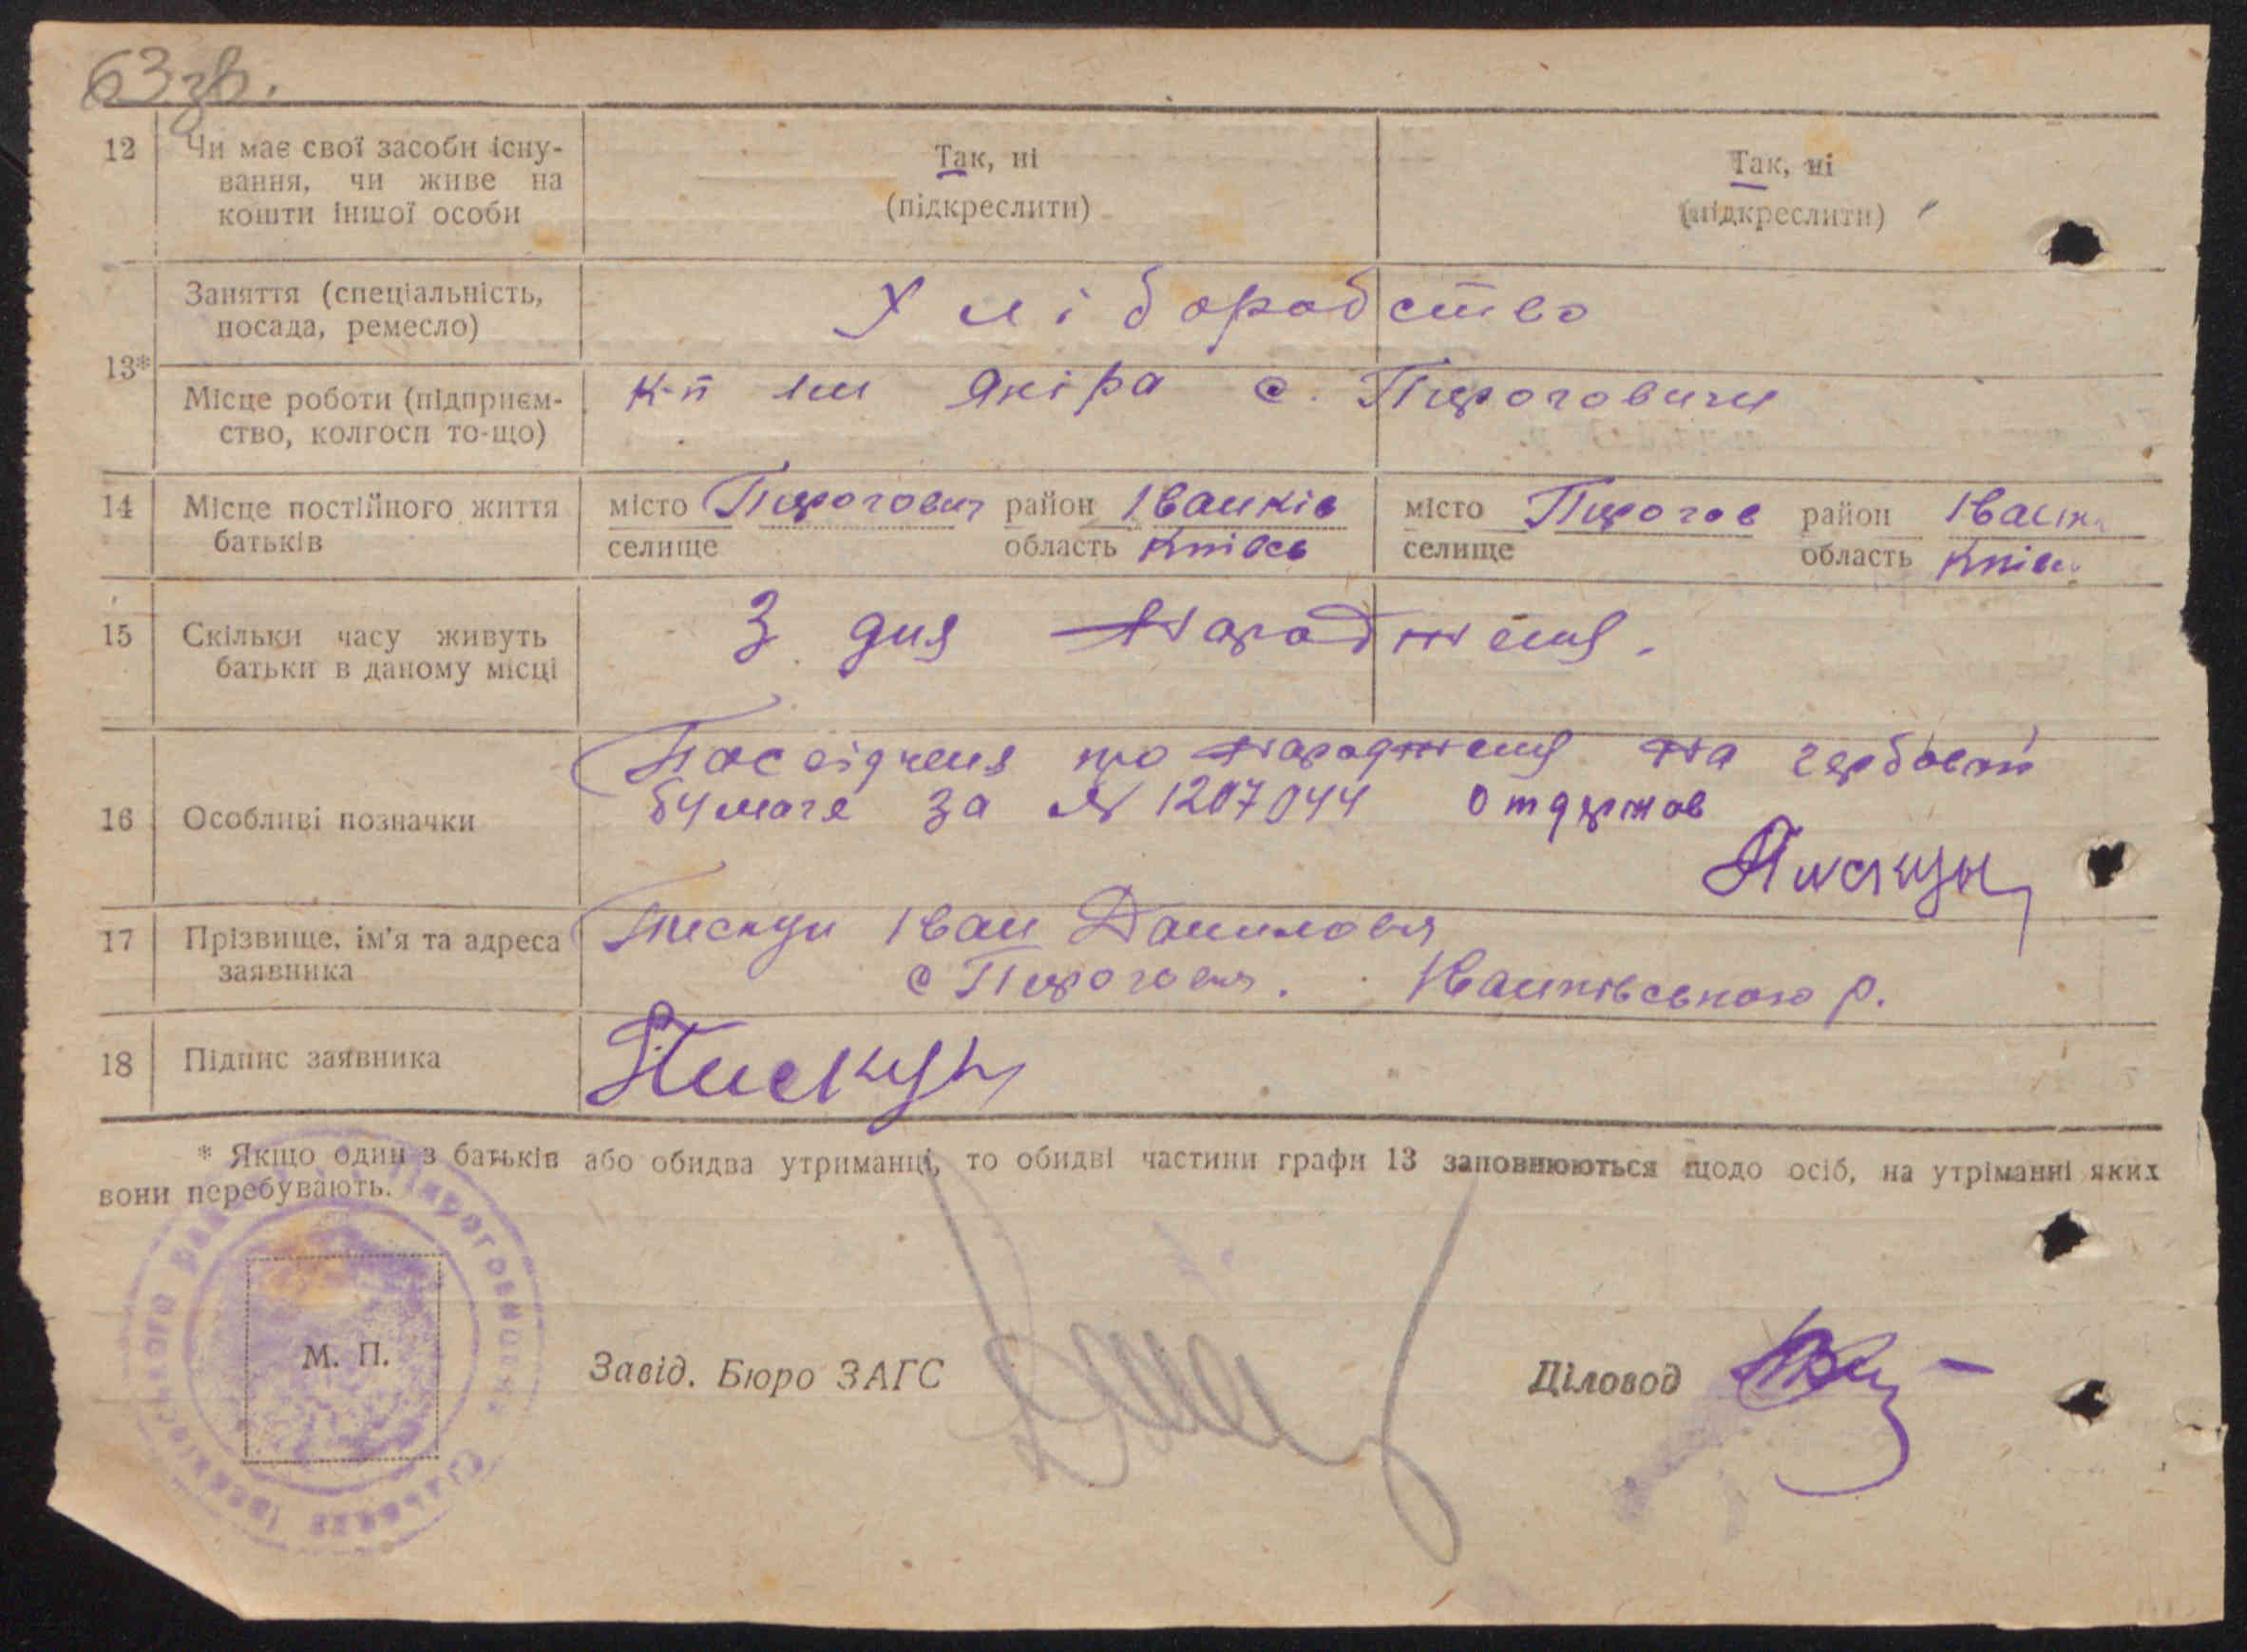 63 зв.
12 Чи має свої засоби існу-
вання, чи живе на
кошти іншої особи
Так, ні
(підкреслити)
Так, ні
(підкреслити)
13*
Заняття (спеціальність,
посада, ремесло)
Хліборобство
Місце роботи (підприєм-
ство, колгосп то-що)
к-п им Якіра с. Пироговичи
14 Місце постійного життя
батьків
місто Пирогович район Іванків
селище область Київсь
місто Пирогов район Іванк
селище область Київ
15 Скільки часу живуть
батьки в даному місці
З дня народженя.
16 Особливі позначки
Посвідченя про народженя на гербовій
бумаге за № 1207044 отдержов
Пискун
17 Прізвище, ім'я та адреса
заявника
Пискун Іван
с Пирогович. Іванківського р.
18 Підпис заявника
Пискун
* Якщо один з батьків або обидва утриманці, то обидві частини графи 13 заповнюються щодо осіб, на утріманні яких
вони перебувають.
М. П.
Завід. Бюро ЗАГС
Діловод